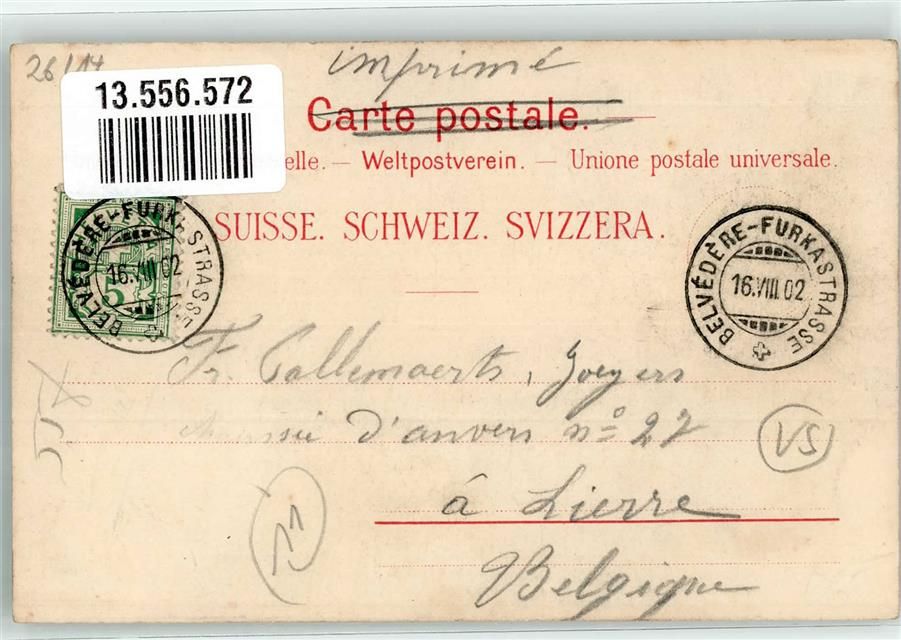 26/14
imprimé
13.556.572
Carte postale.
elle. — Weltpostverein. — Unione postale universale.
SUISSE. SCHWEIZ. SVIZZERA.
BELVÉDÈRE-FURKASTRASSE
16.VIII.02
5
BELVÉDÈRE-FURKASTRASSE
16.VIII.02
Fr. Pallemaerts,
d'anvers nº 27
VS
à Lierre
11
Belgique